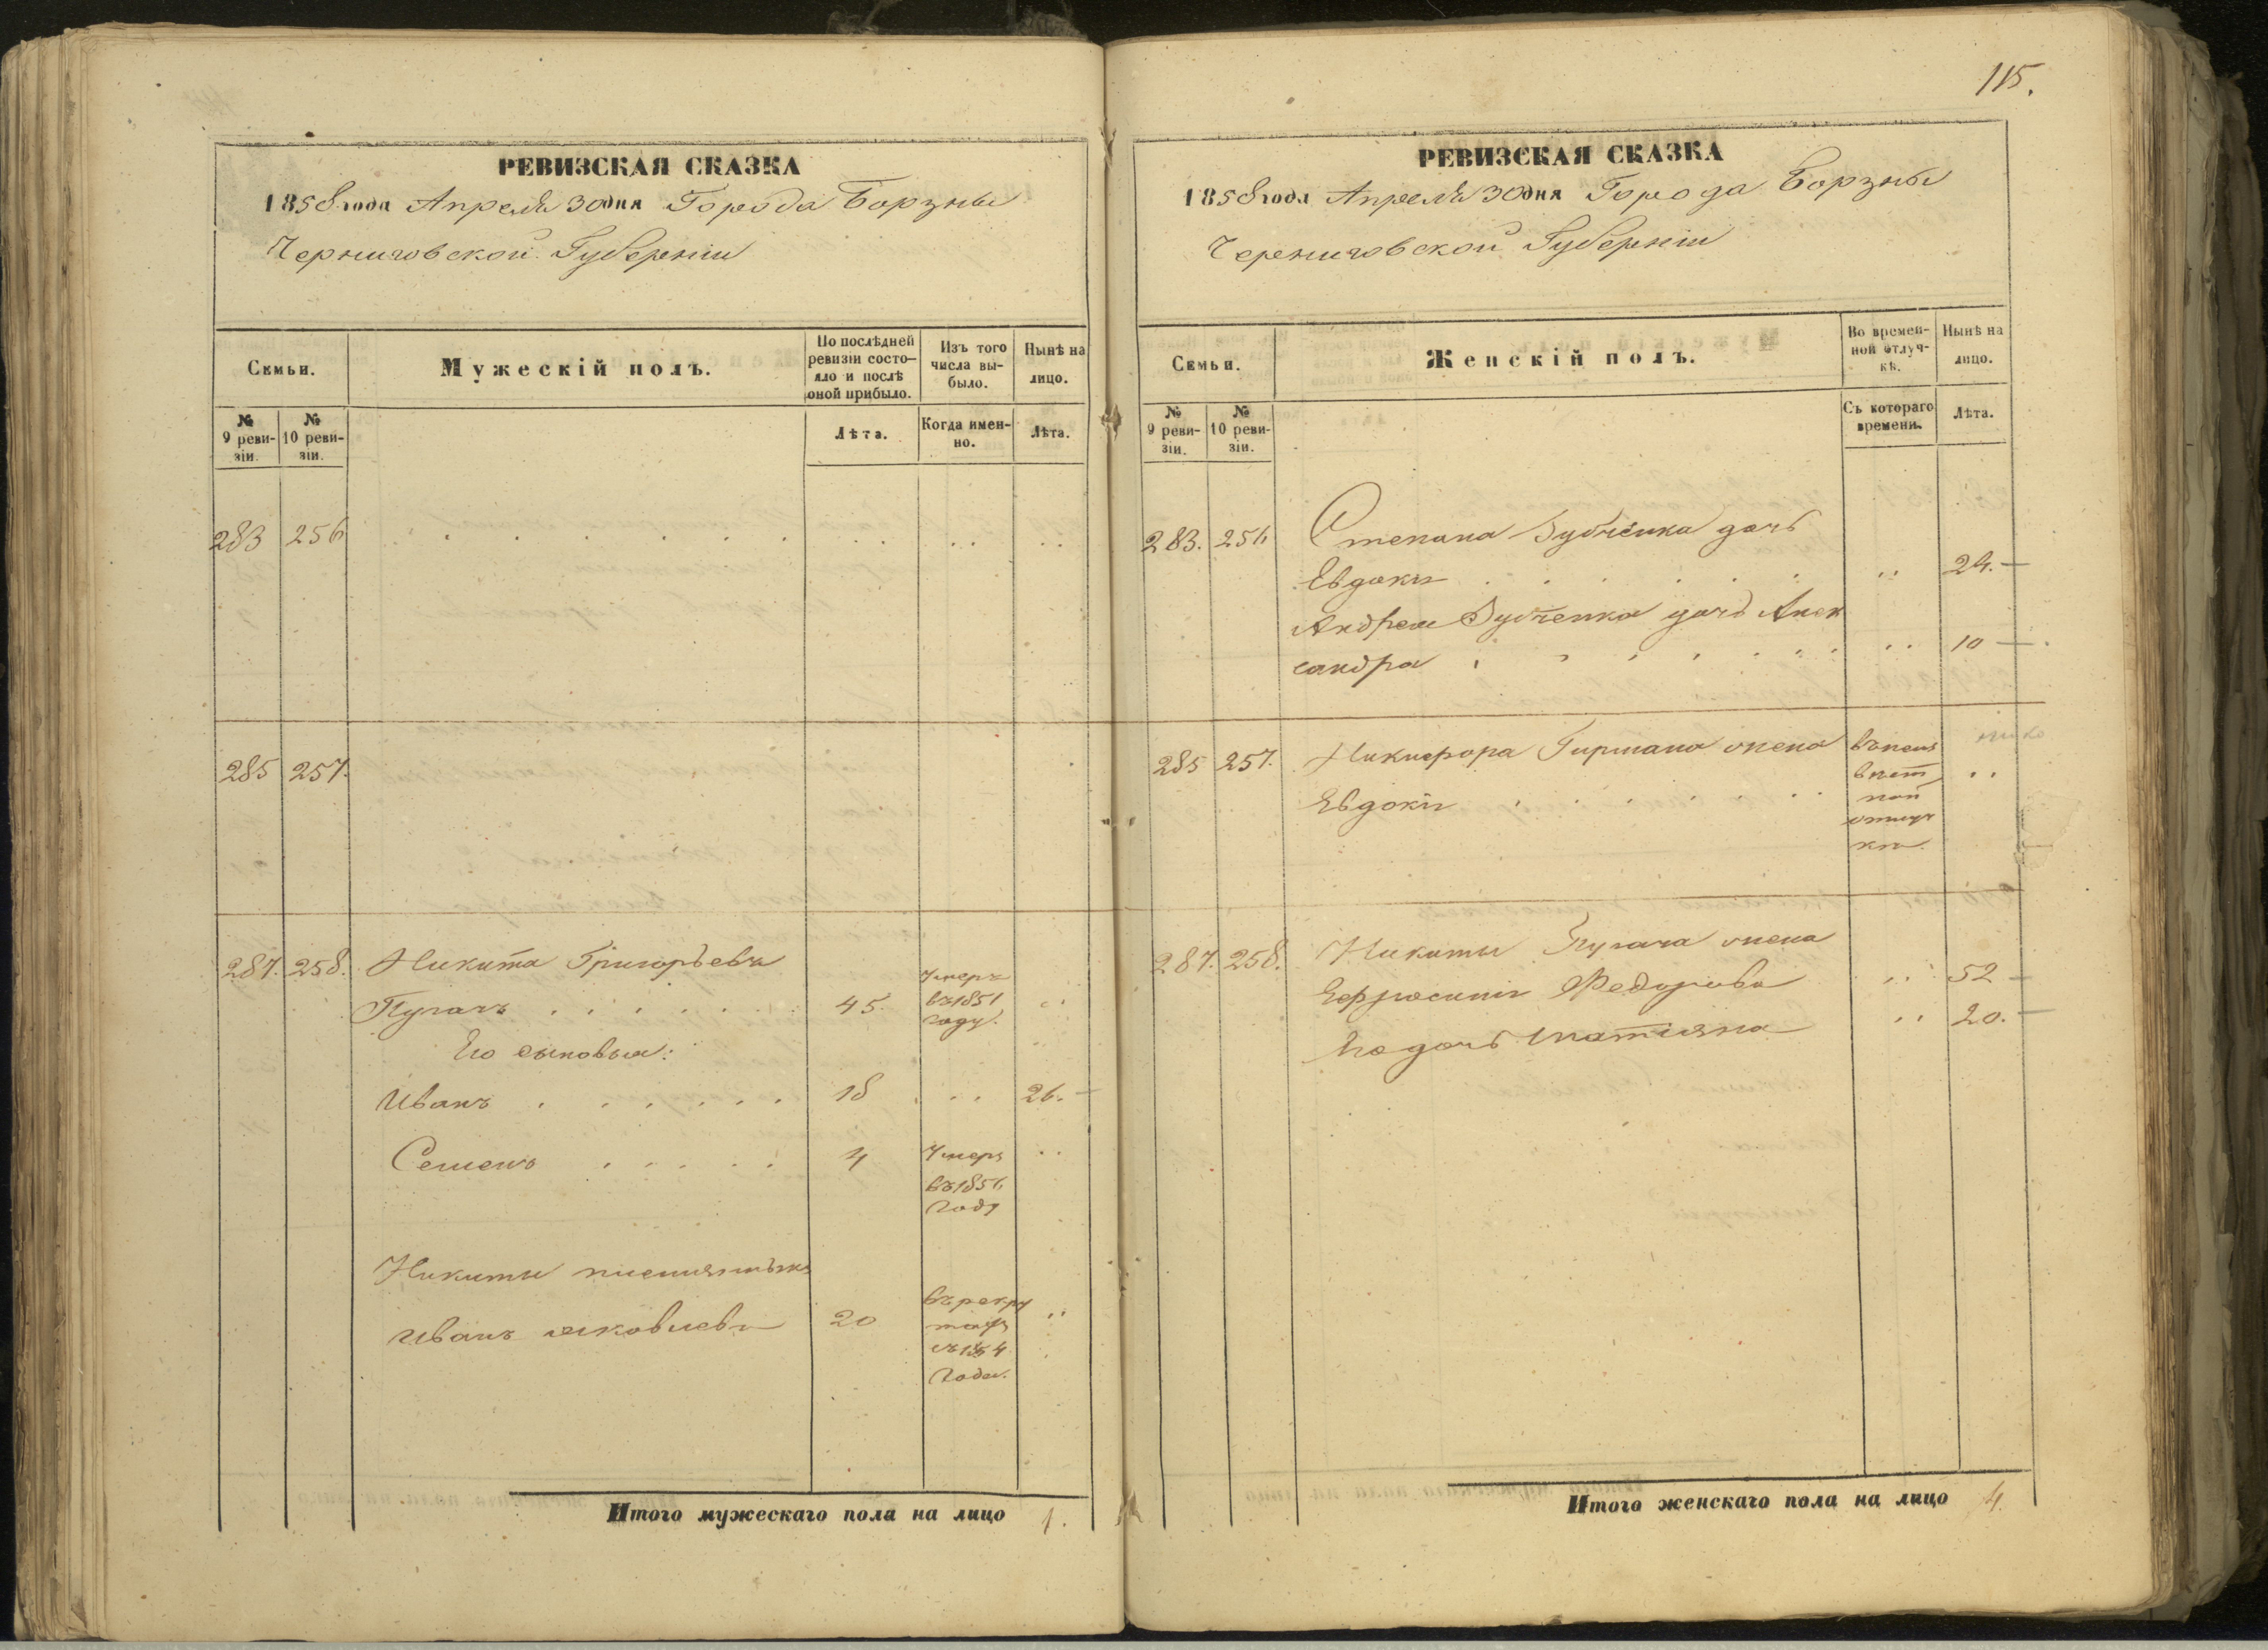 РЕВИЗСКАЯ СКАЗКА
1858 года Апреля 30 дня Города Борзны
Черниговской Губерніи
Семьи.
Мужескій полъ.
По послѣдней ревизіи состояло и послѣ оной прибыло.
Изъ того числа выбыло.
Нынѣ на лицо.
№ 9 ревизіи.
№ 10 ревизіи.
Лѣта.
Когда именно.
Лѣта.
283 256
285 257.
287. 258. Никита Григорьевъ
Пугачъ 45. Умеръ въ 1851 году.
Его сыновья:
Иванъ 18 26.
Семенъ 4 Умеръ въ 1856 году
Никиты племянникъ
Иванъ Яковлевъ 20 въ рекрутахъ съ 1854 года.
Итого мужескаго пола на лицо 1.
115.
РЕВИЗСКАЯ СКАЗКА
1858 года Апреля 30 дня Города Борзны
Черниговской Губерніи
Семьи.
Женскій полъ.
Во временной отлучкѣ.
Нынѣ на лицо.
№ 9 ревизіи.
№ 10 ревизіи.
Съ котораго времени.
Лѣта.
283. 256 Степана Зубченка дочь
Евдокія 24.
Андрея Зубченка дочь Алек
сандра 10
285 257. Никифора Гирмана жена
Евдокія отлучкѣ
287. 258. Никиты Пугача жена
Ефросинія Федорова 52
Его дочь Татіяна 20.
Итого женскаго пола на лицо 4.